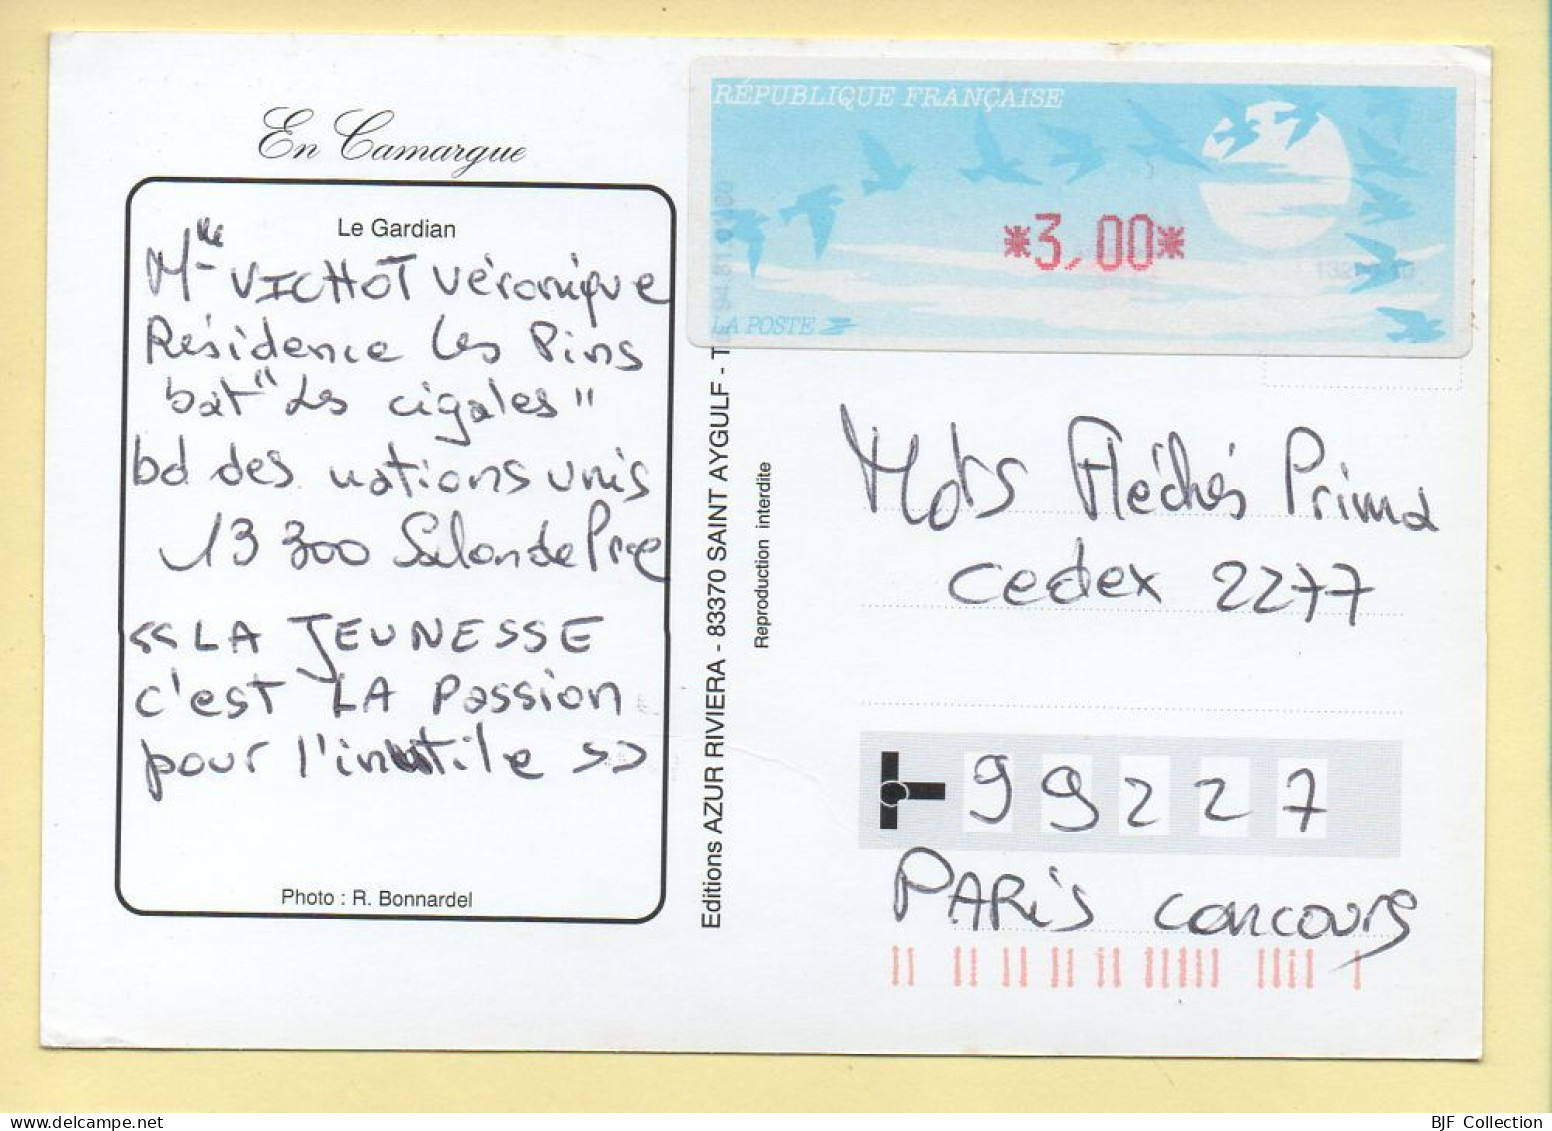 En Camargue
Le Gardian
Mlle VICHOT Véronique
Résidence Les Pins
bat "Les cigales"
bd des nations unis
13 300 Salon de Pce
« LA JEUNESSE
c'est LA Passion
pour l'inutile »
Photo : R. Bonnardel
Editions AZUR RIVIERA - 83370 SAINT AYGULF - T
Reproduction interdite
RÉPUBLIQUE FRANÇAISE
*3,00*
LA POSTE
Mots Fléchés Prima
cedex 2277
99227
PARIS concours
BJF Collection